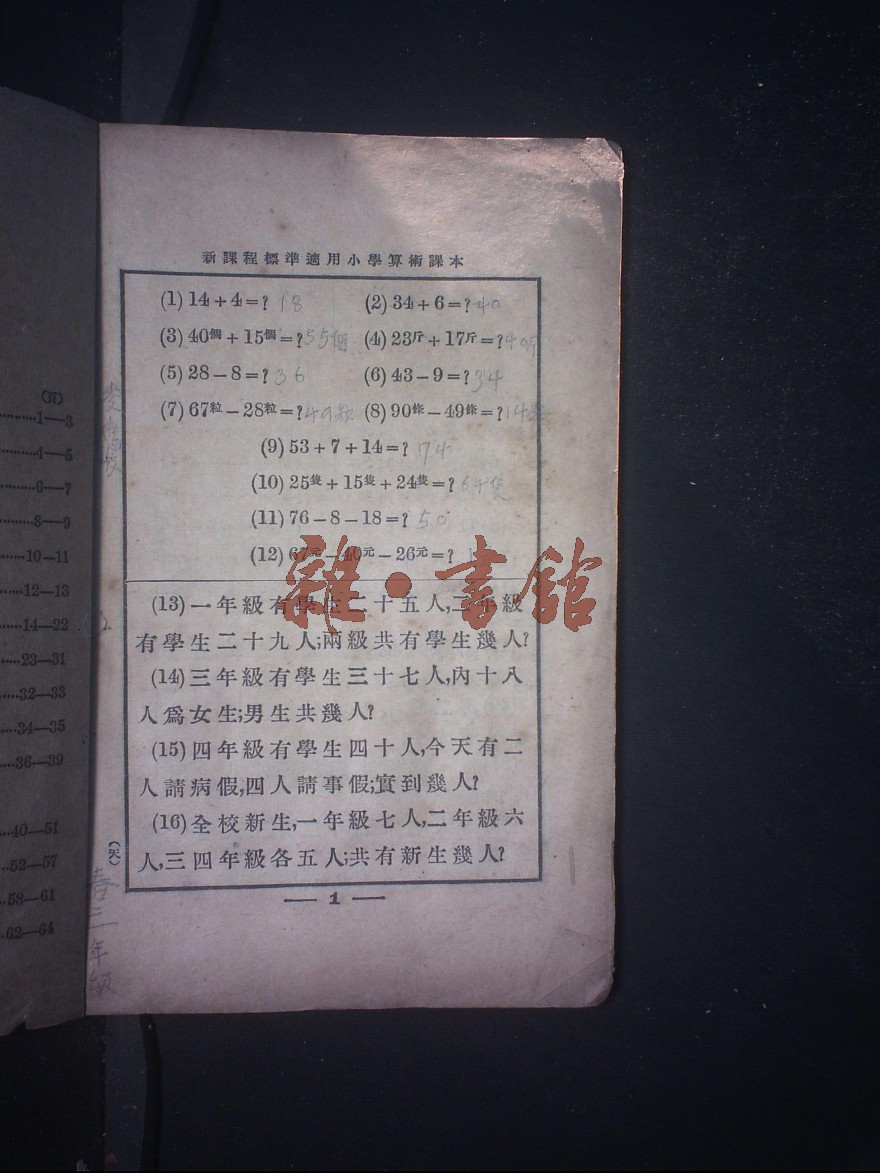 新課程標準適用小學算術課本
(1) 14+4=? 18 (2) 34+6=? 40
(3) 40個+15個=? 55個 (4) 23斤+17斤=? 40斤
(5) 28-8=? 36 (6) 43-9=? 34
(7) 67粒-28粒=? 49粒 (8) 90條-49條=?
(9) 53+7+14=? 74
(10) 25隻+15隻+24隻=? 64隻
(11) 76-8-18=? 50
(12) 67元-40元-26元=? 1
(13) 一年級有學生二十五人,二年級
有學生二十九人;兩級共有學生幾人?
(14) 三年級有學生三十七人,內十八
人爲女生;男生共幾人?
(15) 四年級有學生四十人,今天有二
人請病假,四人請事假;實到幾人?
(16) 全校新生,一年級七人,二年級六
人,三四年級各五人;共有新生幾人?
— 1 —
(天)
春三年級
雜·書館
(頁)
1—3
4—5
6—7
8—9
10—11
12—13
14—22
23—31
32—33
34—35
36—39
40—51
52—57
58—61
62—64